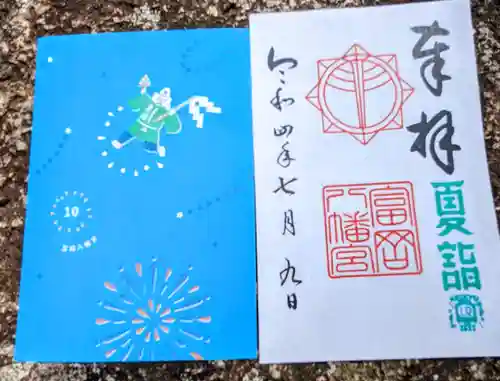 奉拝
夏詣
富岡
八幡宮
令和四年七月九日
10